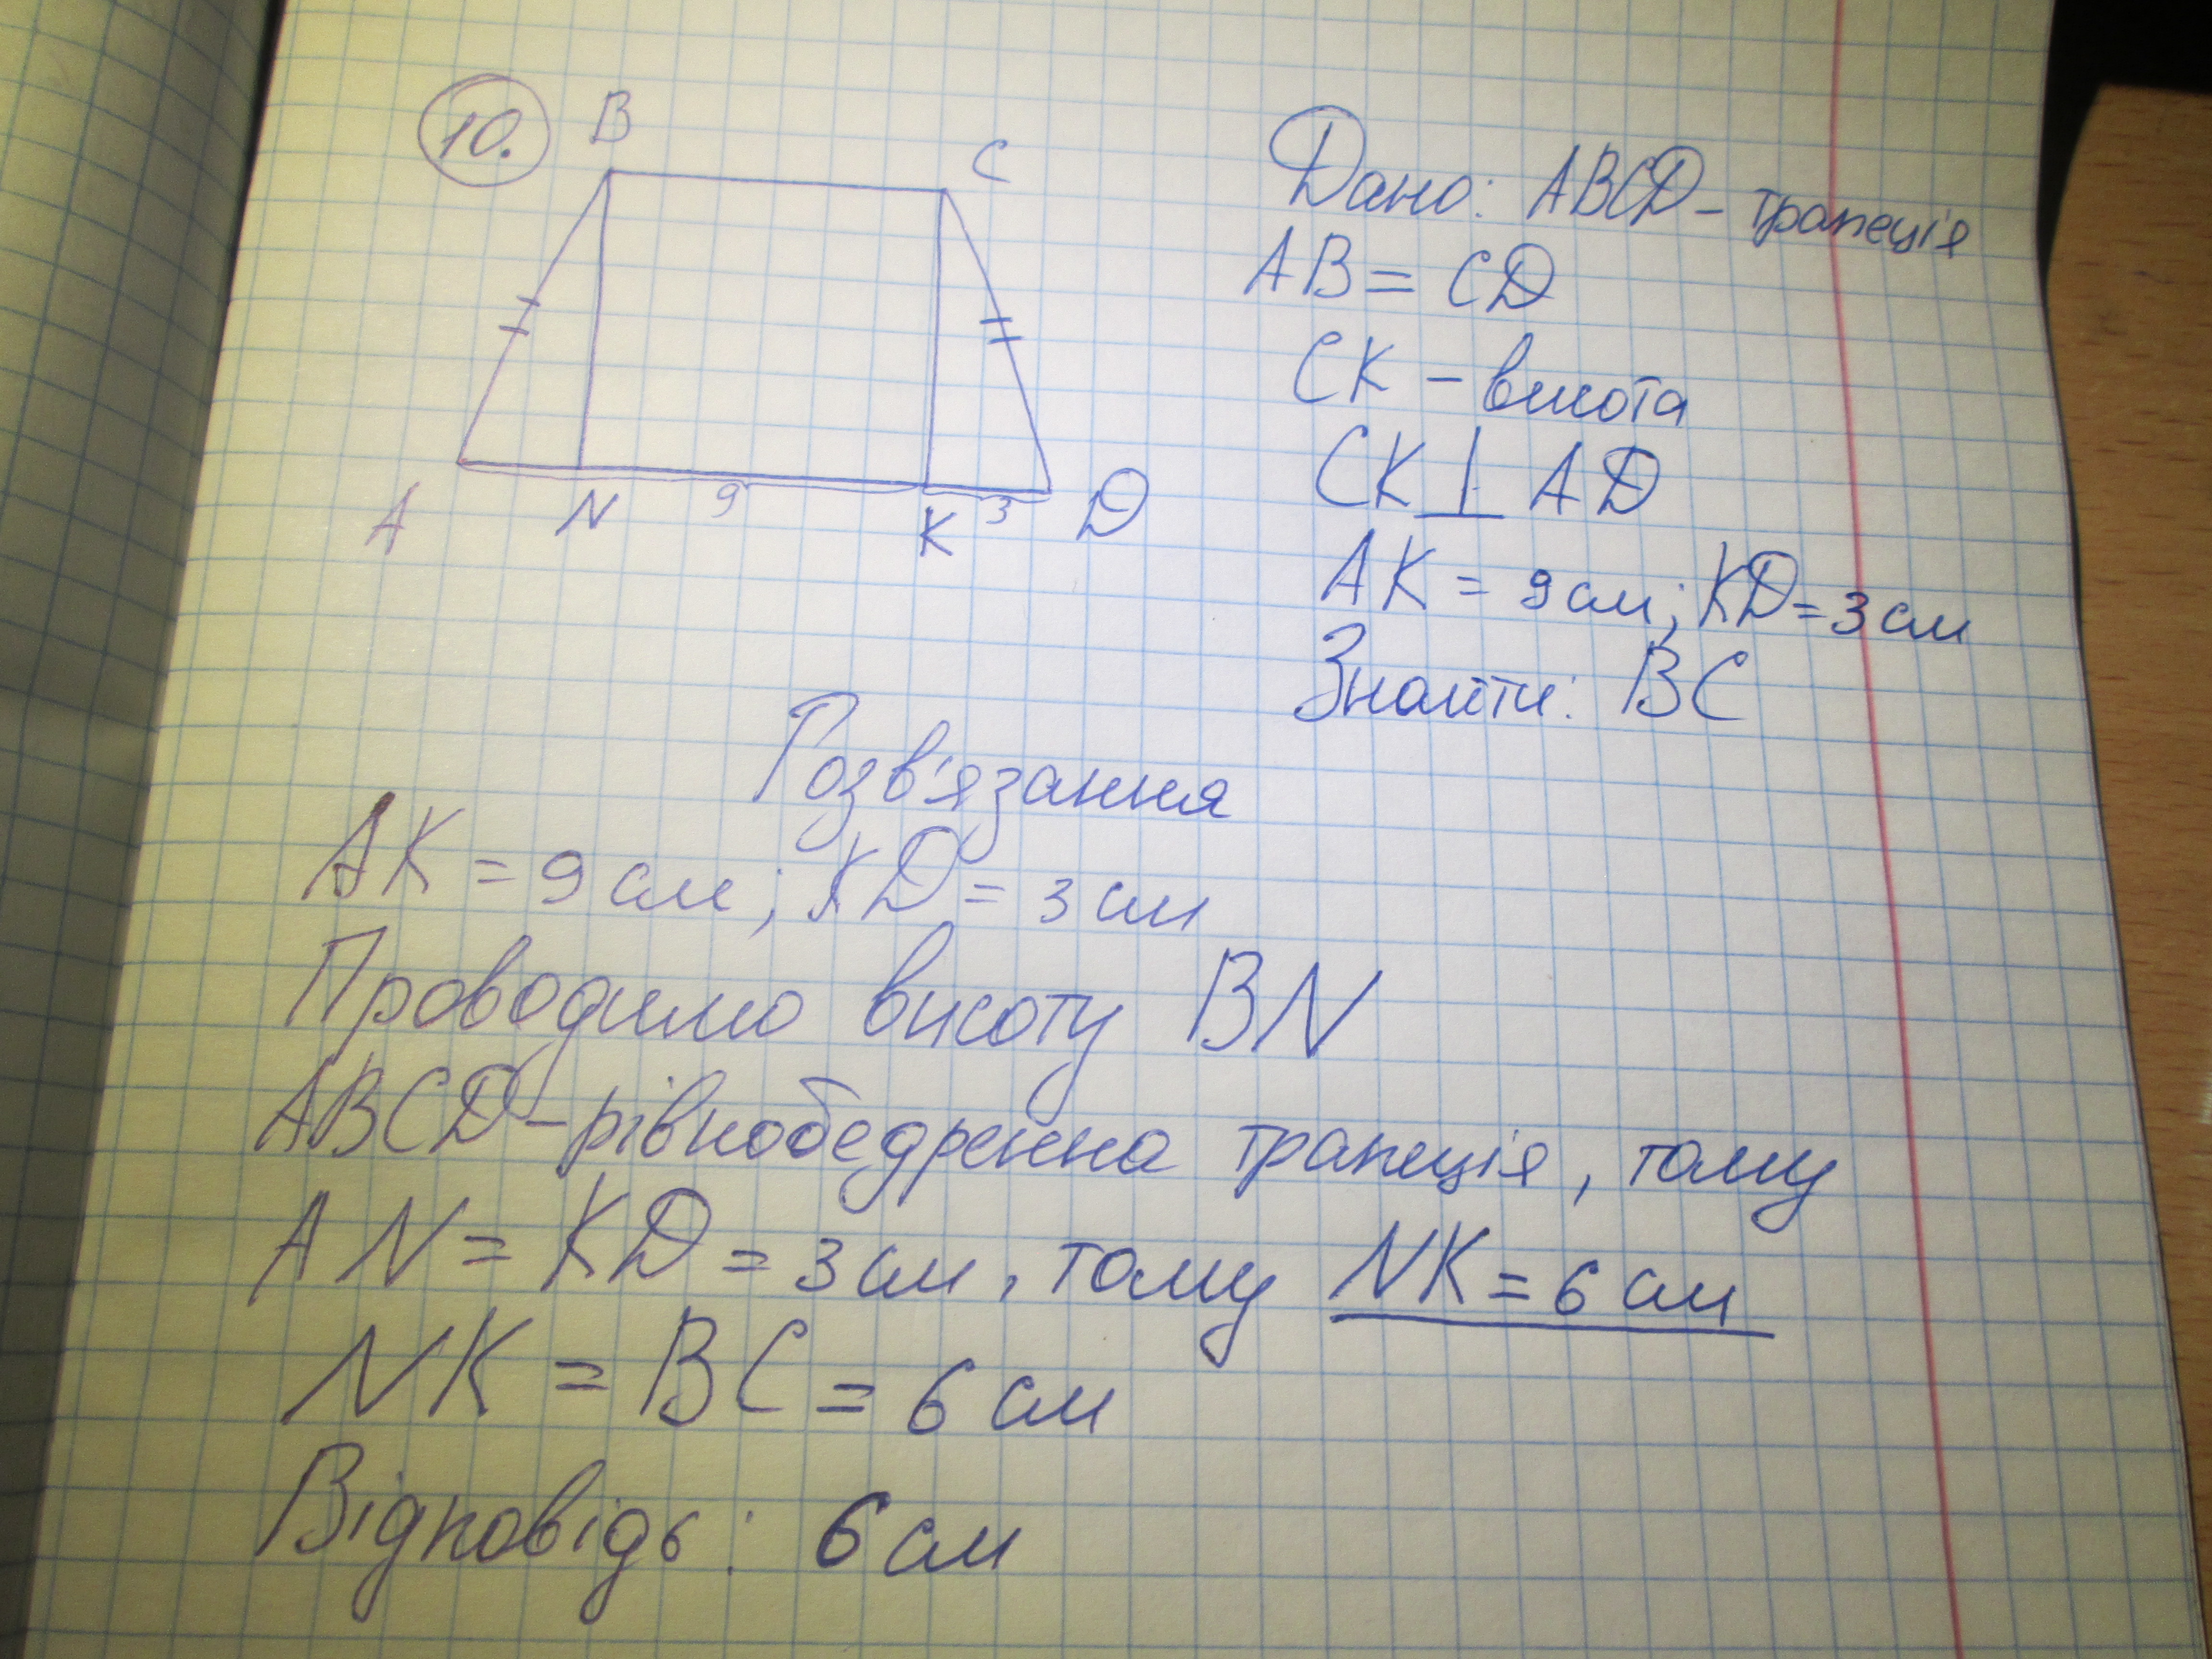 10.
B
C
A
N
9
K
3
D
Дано: ABCD - трапеція
AB = CD
CK - висота
CK ⊥ AD
AK = 9 см; KD = 3 см
Знайти: BC
Розв'язання
AK = 9 см; KD = 3 см
Проводимо висоту BN
ABCD - рівнобедренна трапеція, тому
AN = KD = 3 см, тому NK = 6 см
NK = BC = 6 см
Відповідь: 6 см